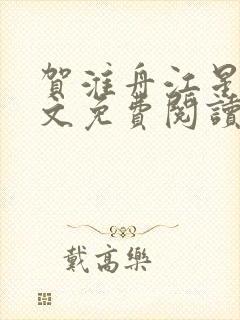 賀淮舟江星
文免費閱讀
戴高樂